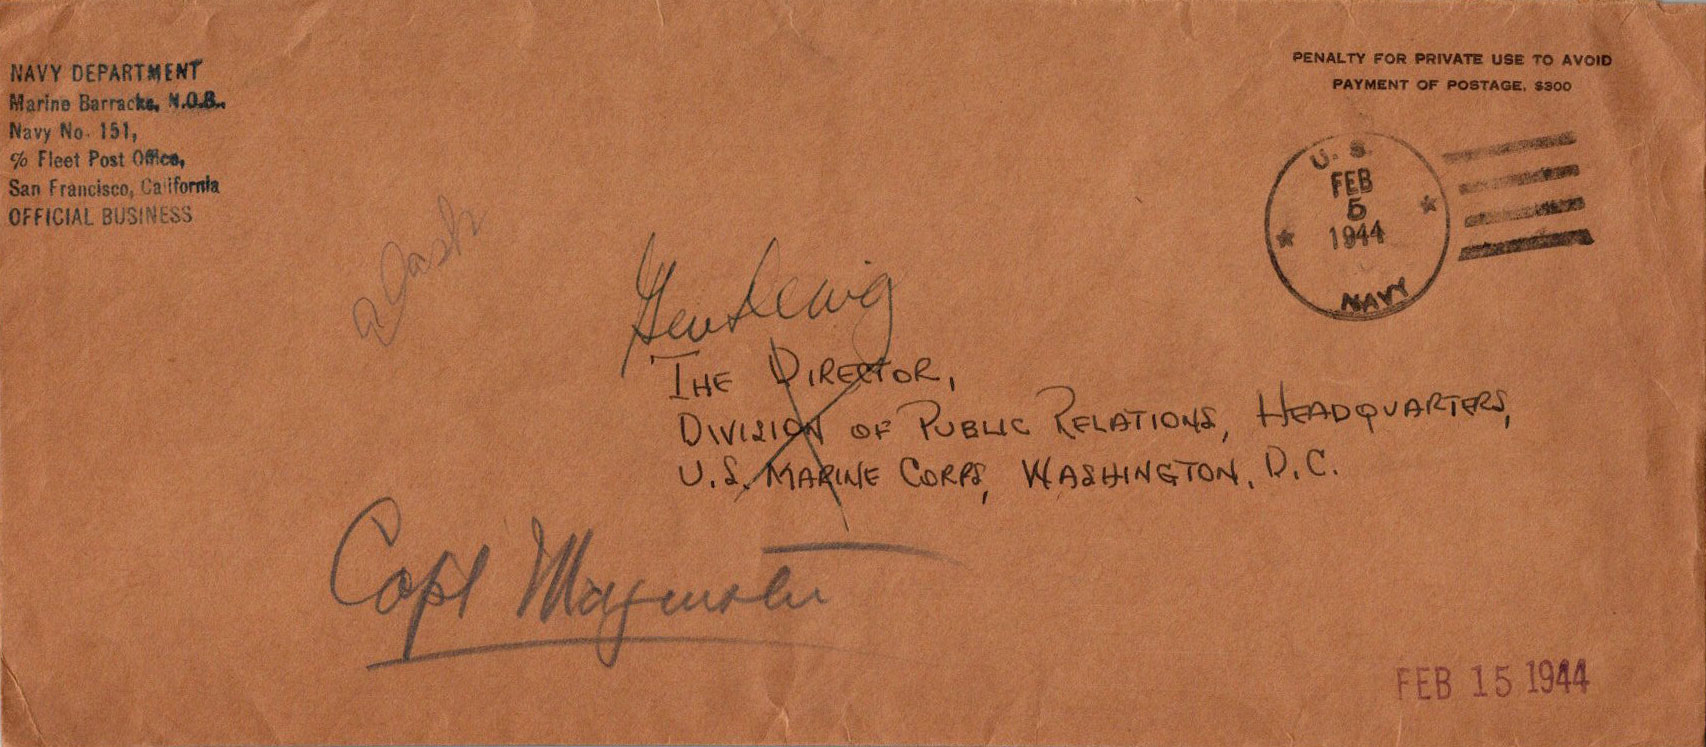 NAVY DEPARTMENT
Marine Barracks, N.O.B.,
Navy No. 151,
℅ Fleet Post Office,
San Francisco, California
OFFICIAL BUSINESS
PENALTY FOR PRIVATE USE TO AVOID
PAYMENT OF POSTAGE, $300
U. S.
FEB
5
1944
NAVY
Gen Denig
THE DIRECTOR,
DIVISION OF PUBLIC RELATIONS, HEADQUARTERS,
U.S. MARINE CORPS, WASHINGTON, D.C.
Capt
FEB 15 1944